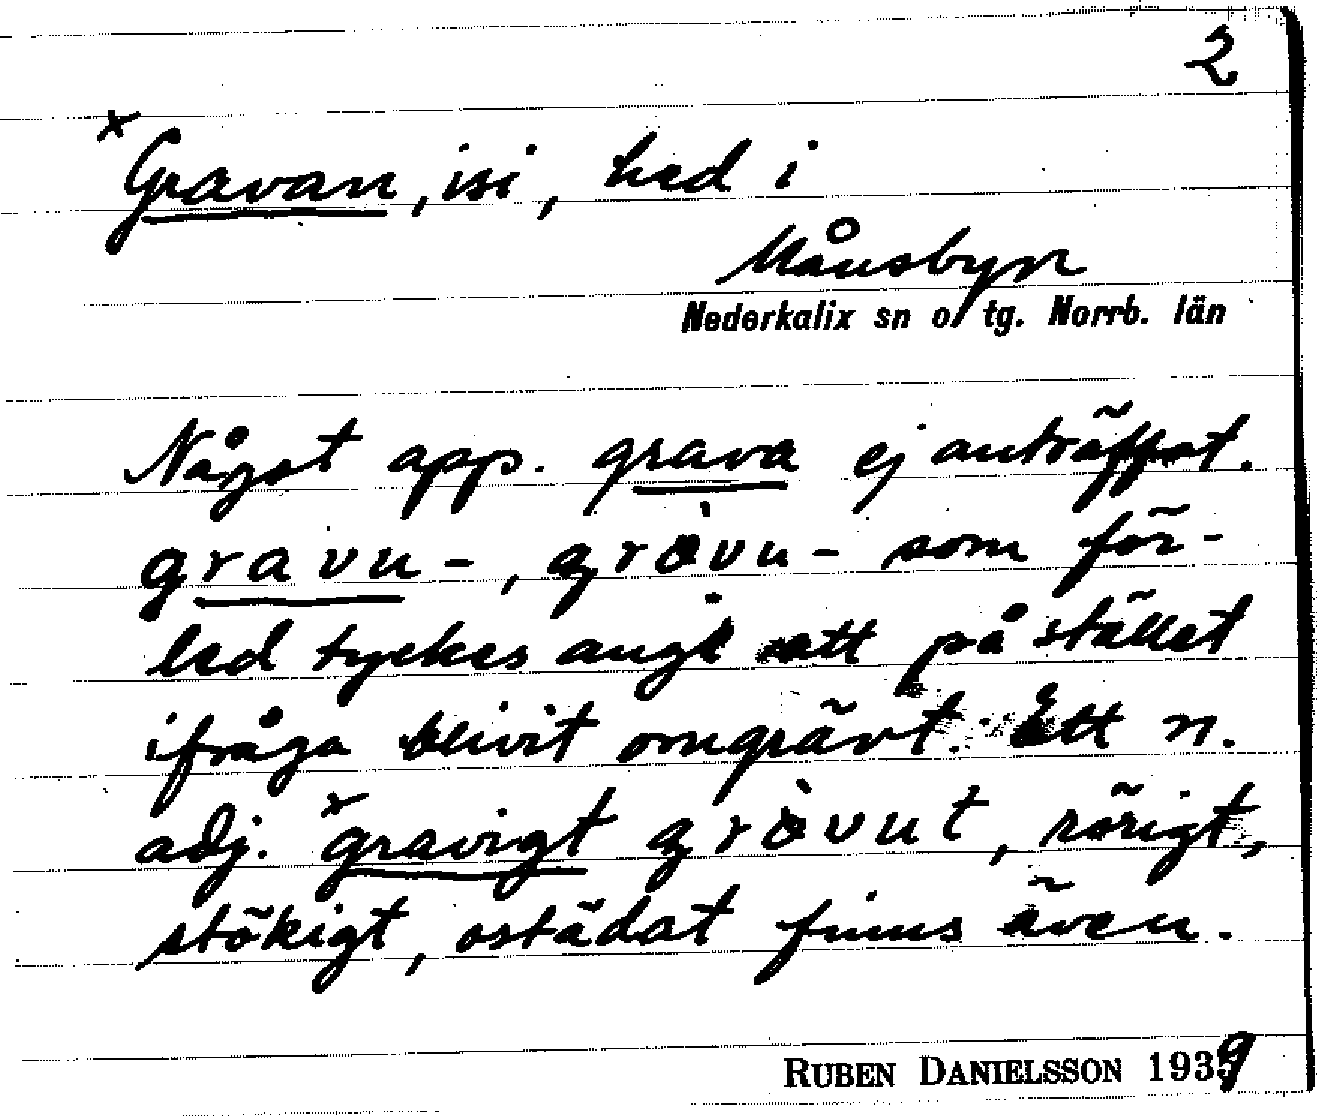 2
×Gravan, isi, hed i
Månsbyn
Nederkalix sn o. tg. Norrb. län
Något app. grava ej anträffat.
gravu-, gròvu- som för-
led tyckes angi att på stället
ifråga blivit omgrävt. Ett n.
adj. ×gravigt gròvut, rörigt,
stökigt, ostädat finns även.
RUBEN DANIELSSON 1939